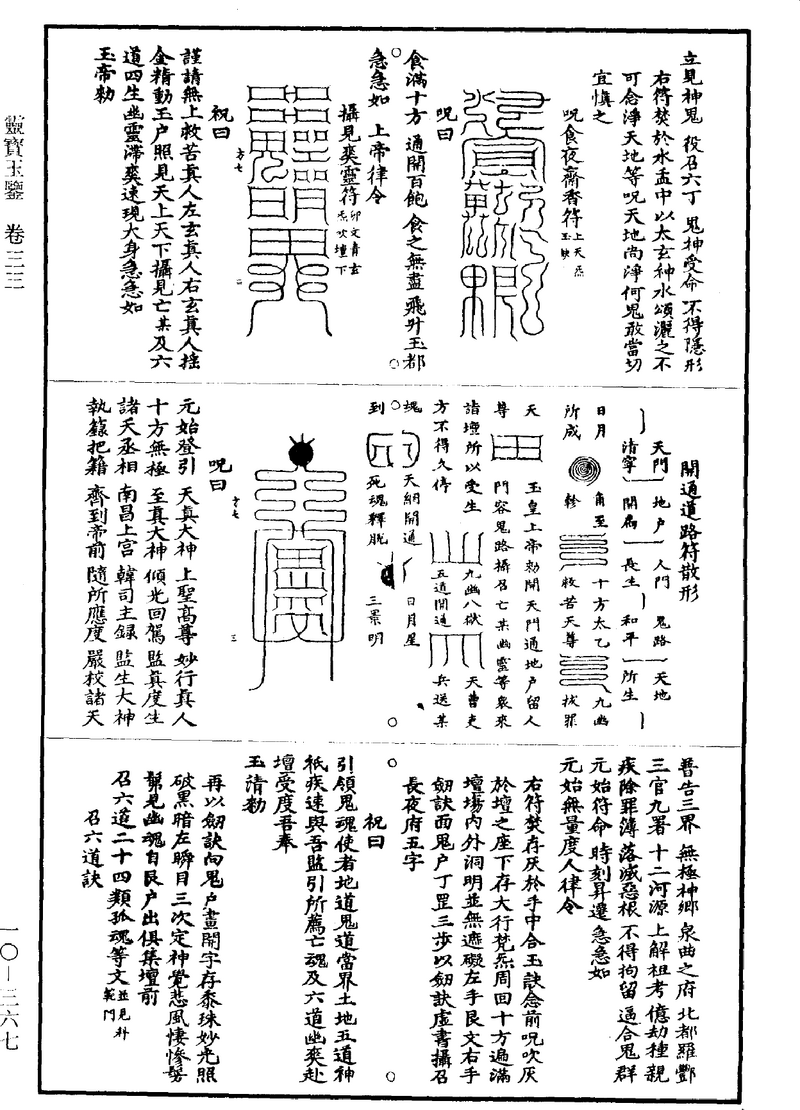 靈寶玉鑒　卷三三
一〇—三六七
立見神鬼　役召六丁　鬼神受命　不得隱形
右符焚於水盂中以太玄神水頌灑之不
可念淨天地等呪天地尚淨何鬼敢當切
宜慎之
呪食夜齋香符
呪曰
食滿十方　通開百飽　食之無盡　飛升玉都
急急如　上帝律令
攝見爽靈符
祝曰
謹請無上救苦真人左玄真人右玄真人搖
金精動玉户照見天上天下攝見亡某及六
道四生幽靈滯爽速現大身急急如
玉帝勑
開通道路符散形
天門　地户　人門　鬼路　天地
清寧　開廓　長生　和平　所生
日月　角至　十方太乙　九幽
所成　軫　救苦天尊　拔罪
天　玉皇上帝勑開天門通地户留人
尊　門容鬼路攝召亡某幽靈等衆來
詣壇所以受生　九幽八獄　天曹吏
方不得久停　五道開通　兵送某
魂　天納開通　日月星
到　死魂釋脱　三景明
呪曰
元始登引　天真大神　上聖高尊　妙行真人
十方無極　至真大神　傾光回駕　監真度生
諸天丞相　南昌上宮　韓司主録　監生大神
執籙把籍　齊到帝前　隨所應度　嚴校諸天
普告三界　無極神鄉　泉曲之府　北都羅酆
三官九署　十二河源　上解祖考　億劫種親
疾除罪簿　落滅惡根　不得拘留　逼合鬼群
元始符命　時刻昇遷　急急如
元始無量度人律令
右符焚存灰於手中合玉訣念前呪吹灰
於壇之座下存大行梵炁周回十方遍滿
壇場内外洞明並無遮礙左手艮文右手
劒訣面鬼户丁罡三步以劒訣虚書攝召
長夜府五字
祝曰
引領鬼魂使者地道鬼道當界土地五道神
祇疾速與吾監引所薦亡魂及六道幽爽赴
壇受度吾奉
玉清勑
再以劒訣向鬼户畫開字存黍珠妙光照
破黑暗左瞬目三次定神覺悲風悽慘髣
髴見幽魂自艮户出俱集壇前
召六道二十四類孤魂等文
召六道訣